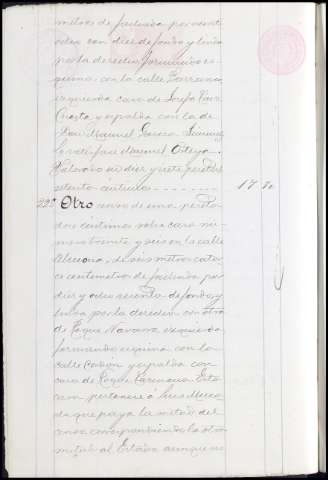 metros de fachada por veinti
ocho con diez de fondo y linda
por la derecha formando es
quina con la calle Barranco
izquierda casa de Josefa
Cuesta y espalda con la de
Don Manuel Garcia
lo satisface Manuel Ortega
Valorado en diez y siete pesetas
setenta céntimos 17 70
22º Otro censo de una peseta
dos céntimos sobre casa nú
mero veinte y seis en la calle
de seis metros cator
ce centímetros de fachada por
diez y ocho de fondo y
linda por la derecha con otra
de Roque Navarro izquierda
formando esquina con la
calle y espalda con
casa de Roque Este
censo pertenece á
da que paga la mitad del
censo correspondiendo la otra
mitad al Estado aunque no